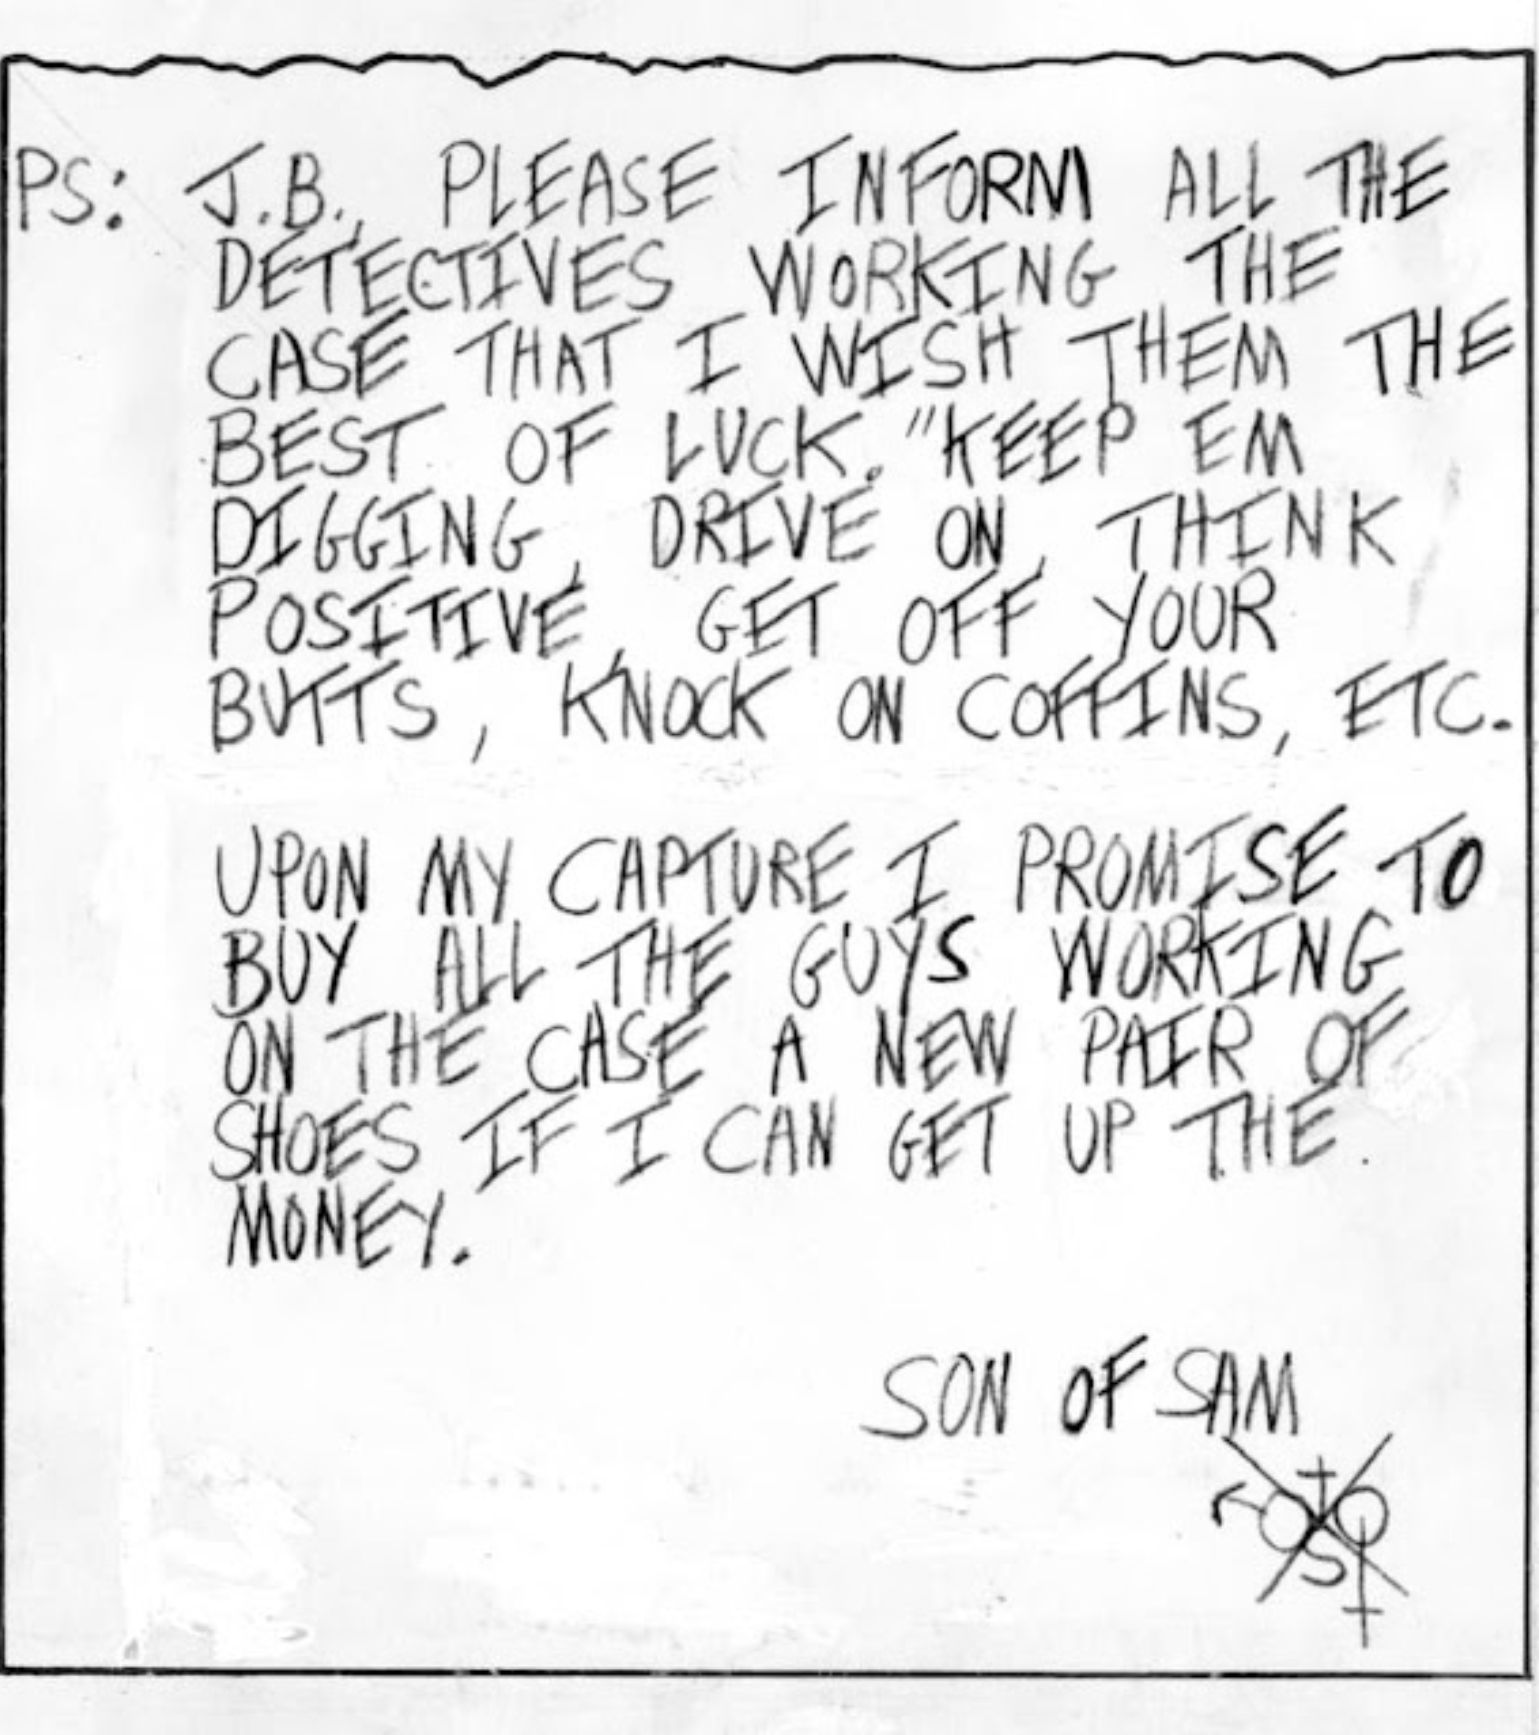 PS: J.B., PLEASE INFORM ALL THE
DETECTIVES WORKING THE
CASE THAT I WISH THEM THE
BEST OF LUCK. "KEEP EM
DIGGING, DRIVE ON, THINK
POSITIVE, GET OFF YOUR
BUTTS, KNOCK ON COFFINS, ETC.
UPON MY CAPTURE I PROMISE TO
BUY ALL THE GUYS WORKING
ON THE CASE A NEW PAIR OF
SHOES IF I CAN GET UP THE
MONEY.
SON OF SAM
S